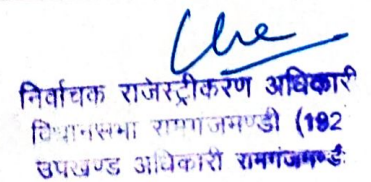 निर्वाचक राजस्ट्रीकरण अधिकारी
विधानसभा रामगंजमण्डी (192
उपखण्ड अधिकारी रामगंजमण्डी